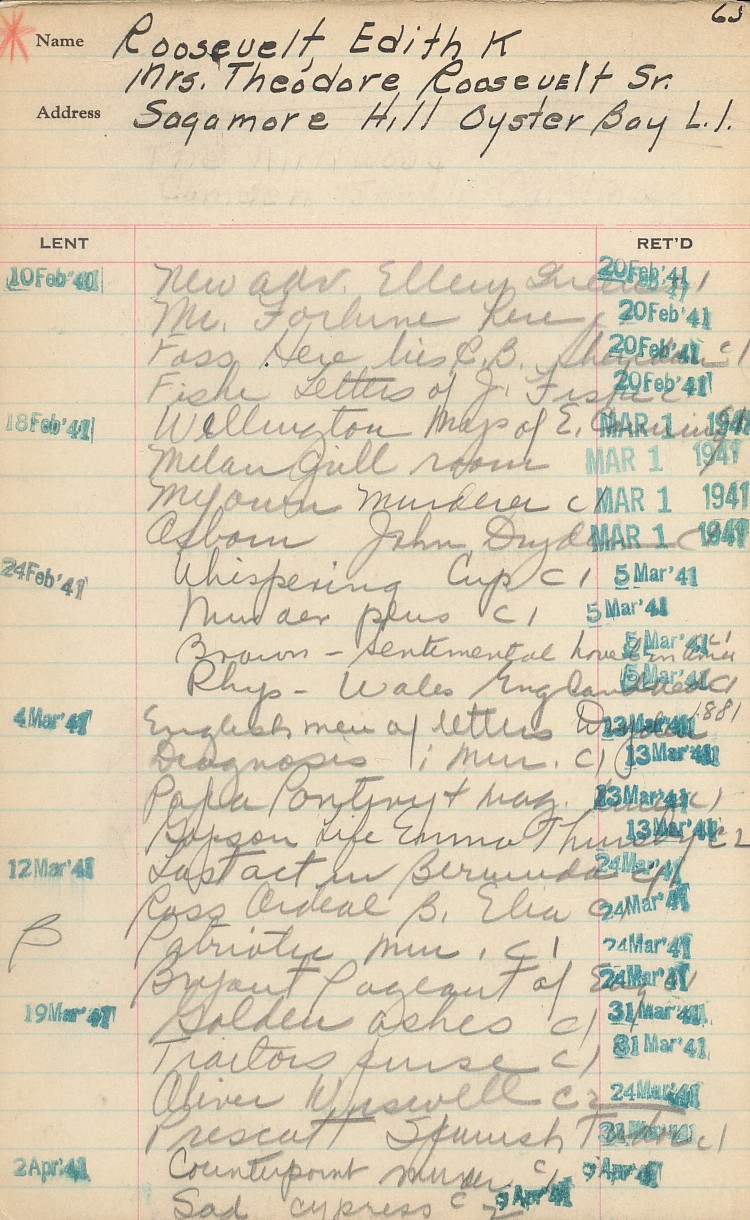 65
Name Roosevelt, Edith K
Mrs. Theodore Roosevelt Sr.
Address Sagamore Hill Oyster Bay L.I.
LENT RET'D
10 Feb '41 New adv. Ellery 20 Feb '41
Mr. Fortune here c 20 Feb '41
Foss Here lies R.B. Sheridan c1 20 Feb '41
Fiske Letters of J. Fiske c 20 Feb '41
18 Feb '41 Wellington Maps of E. MAR 1 1941
Melan Grill room MAR 1 1941
My own murderer c1 MAR 1 1941
Osborn John Dryden c1 MAR 1 1941
24 Feb '41 Whispering Cup c1 5 Mar '41
Murder plus c1 5 Mar '41
Brown - Sentimental novel in Amer c1 5 Mar '41
Rhys - Wales England wed c1 5 Mar '41
4 Mar '41 English men of letters Dryden 1881 13 Mar '41
Diagnosis: mur. c1 13 Mar '41
Papa Pontivy + 13 Mar '41
Gipson Life Emma Thursby c2 13 Mar '41
12 Mar '41 Last act in Bermuda c1 24 Mar '41
Ross Ordeal B. Elia c 24 Mar '41
Patriotic mur. c1 24 Mar '41
Bryant Pageant of Eng c1 24 Mar '41
19 Mar '41 Golden ashes c1 31 Mar '41
Traitors purse c1 31 Mar '41
Oliver Wiswell c2 24 Mar '41
Prescott Spanish Tudor c1 31 Mar '41
2 Apr '41 Counterpoint murder c1 9 Apr '41
Sad cypress c2 9 Apr '41